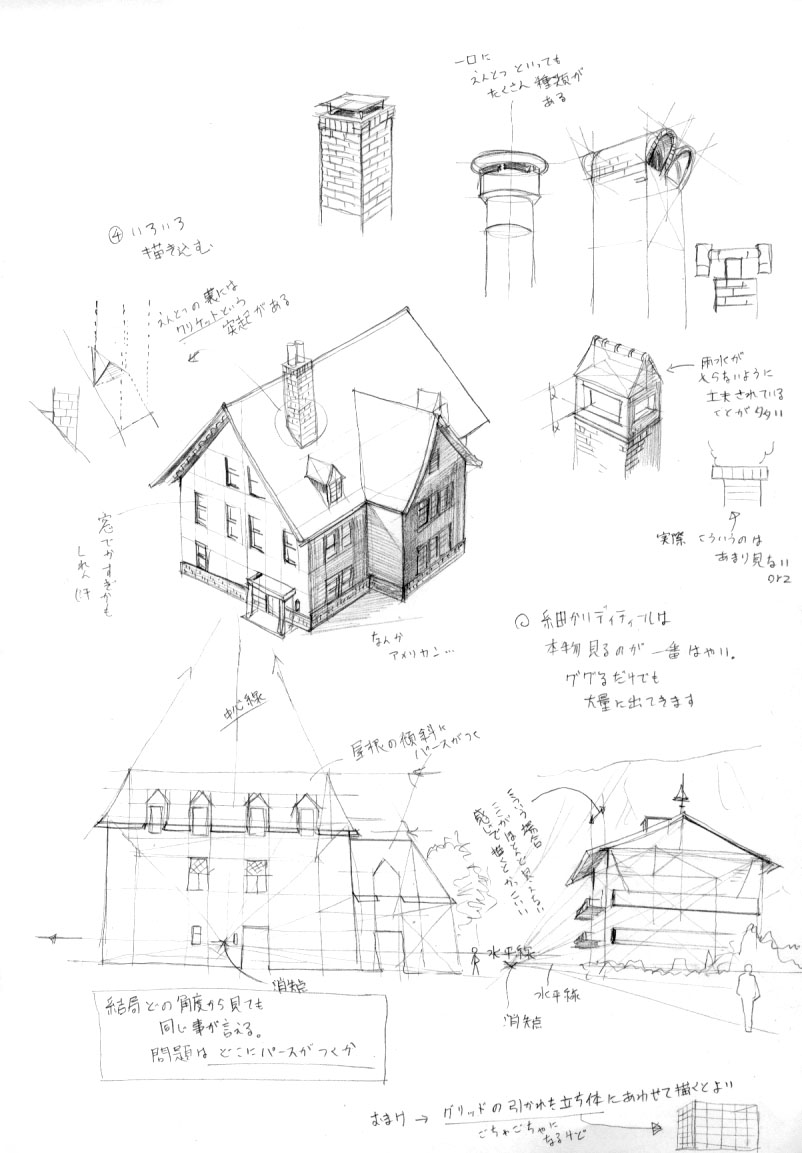 一口に
えんとつ といっても
たくさん 種類が
ある
④ いろいろ
描き込む
えんとつの裏には
クリケットという
突起がある
雨水が
入らないように
工夫されている
ことが多い
実際 こういうのは
あまり見ない
orz
窓でかすぎかも
しれん 汗
なんか
アメリカン…
細かいディティールは
本物見るのが一番はやい。
ググるだけでも
大量に出てきます
中心線
屋根の傾斜に
パースがつく
こういう場合
ここがほとんど見えない
感じで描くとかっこいい
水平線
消失点
水平線
消失点
結局どの角度から見ても
同じ事が言える。
問題は どこにパースがつくか
おまけ → グリッドの引かれた立ち体にあわせて描くとよい
ごちゃごちゃに
なるけど